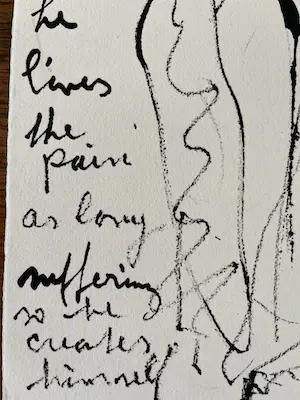 he
lives
the
pain
as long
suffering
so he
creates
himself